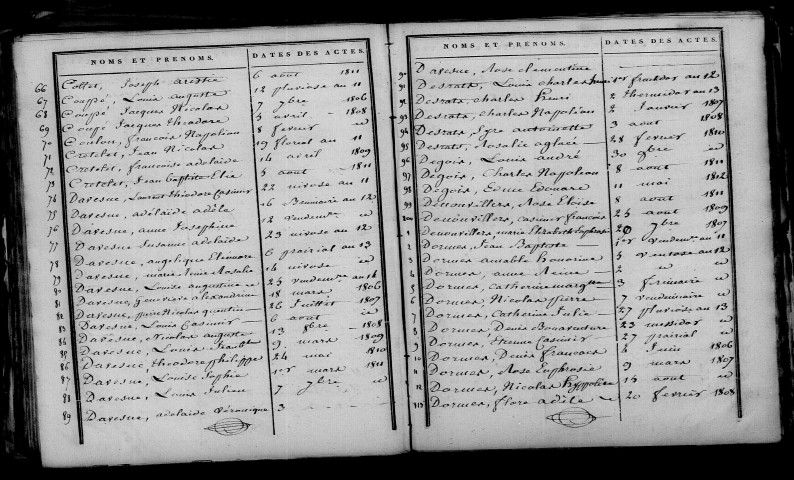 NOMS ET PRENOMS. DATES DES ACTES.
66 Collet, Joseph aristie 6 aout 1811
67 Couppé, Louis auguste 12 pluviose an 11
68 Couppé Jacques Nicolas 7 gbre 1806
69 Coupé Jacques théodore 5 avril 1808
70 Coulon, francois Napoléon 8 fevrier id
71 Cretelet, Jean Nicolas 19 floreal an 11
72 Cretelet, francoise adelaide 14 avril 1809
73 Cretelet, Jean Baptiste Elie 5 aout 1811
74 Daresne, Laurent théodore Casimir 22 nivose an 11
75 Daresne, adélaide adèle 16 Brumaire an 12
76 Daresne, anne Josephine 12 vendemre id
77 Daresne Susanne adelaide 23 nivose an 12
78 Daresne, angelique Eleonore 6 prairial an 13
79 Daresne, marie Louise Rosalie 14 nivose id
80 Daresne, Louise augustine 25 vendemre an 14
81 Daresne, genevieve alexandrine 18 mars 1806
82 Daresne, pierre Nicolas quentin 26 Juillet 1807
83 Daresne, Louis Casimir 6 aout id
84 Daresne, Nicolas auguste 13 gbre 1808
85 Daresne, Louis 9 mars 1809
86 Daresne, theodore philippe 24 mai 1810
87 Daresne, Louise Sophie 1er mars 1811
88 Daresne, Louis Julien 7 gbre id
89 Daresne, adelaide Véronique 3
NOMS ET PRENOMS. DATES DES ACTES.
90 Daresne, Rose Clementine
91 Desrats, Louis Charles fructidor an 12
92 Desrats, Charles henri 2 thermidor an 13
93 Desrats, Charles Napoléon 2 Janvier 1807
94 Desrats, antoinette 3 aout 1808
95 Desrats, Rosalie aglaé 28 fevrier 1810
96 Degois, Louis andré 30 gbre id
97 Degois, Charles Napoléon 8 aout 1811
98 Degois, Edme Edouare 11 mai 1812
99 Denouvillers, Rose Eloise 8 aout 1811
100 Denouvillers, casimir francois 25 aout 1809
1 Denouvillers, marie Elizabeth Euphrosie 20 gbre 1807
2 Dormes, Jean Baptiste 1er vendemre an 11
3 Dormes amable honorine 5 ventose an 12
4 Dormes, anne Reine 2 id id
5 Dormes, Catherine 3 frimaire id
6 Dormes, Nicolas pierre 7 vendémaire id
7 Dormes, Catherine Julie 27 pluviose an 13
8 Dormes, Denis Bonaventure 23 messidor id
9 Dormes, Etienne Casimir 27 prairial id
10 Dormes, Denis francois 4 Juin 1806
11 Dormes, Rose Euphrosie 9 mars 1807
12 Dormes, Nicolas hyppolite 15 aout id
113 Dormes, flore adèle 20 fevrier 1808